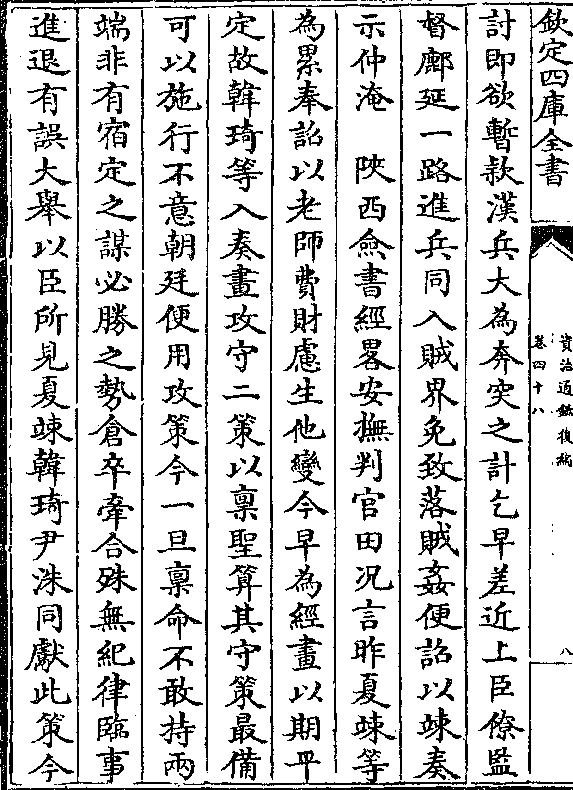 欽定四庫全書
資治通鑑後編
卷四十八
八
討即欲暫款漢兵大為奔突之計乞早差近上臣僚監
督鄜延一路進兵同入賊界免致落賊姦便詔以竦奏
示仲淹　陜西僉書經畧安撫判官田况言昨夏竦等
為累奉詔以老師費財慮生他變今早為經畫以期平
定故韓琦等入奏畫攻守二策以稟聖算其守策最備
可以施行不意朝廷便用攻策今一旦稟命不敢持兩
端非有宿定之謀必勝之勢倉卒牽合殊無紀律臨事
進退有誤大舉以臣所見夏竦韓琦尹洙同獻此策今